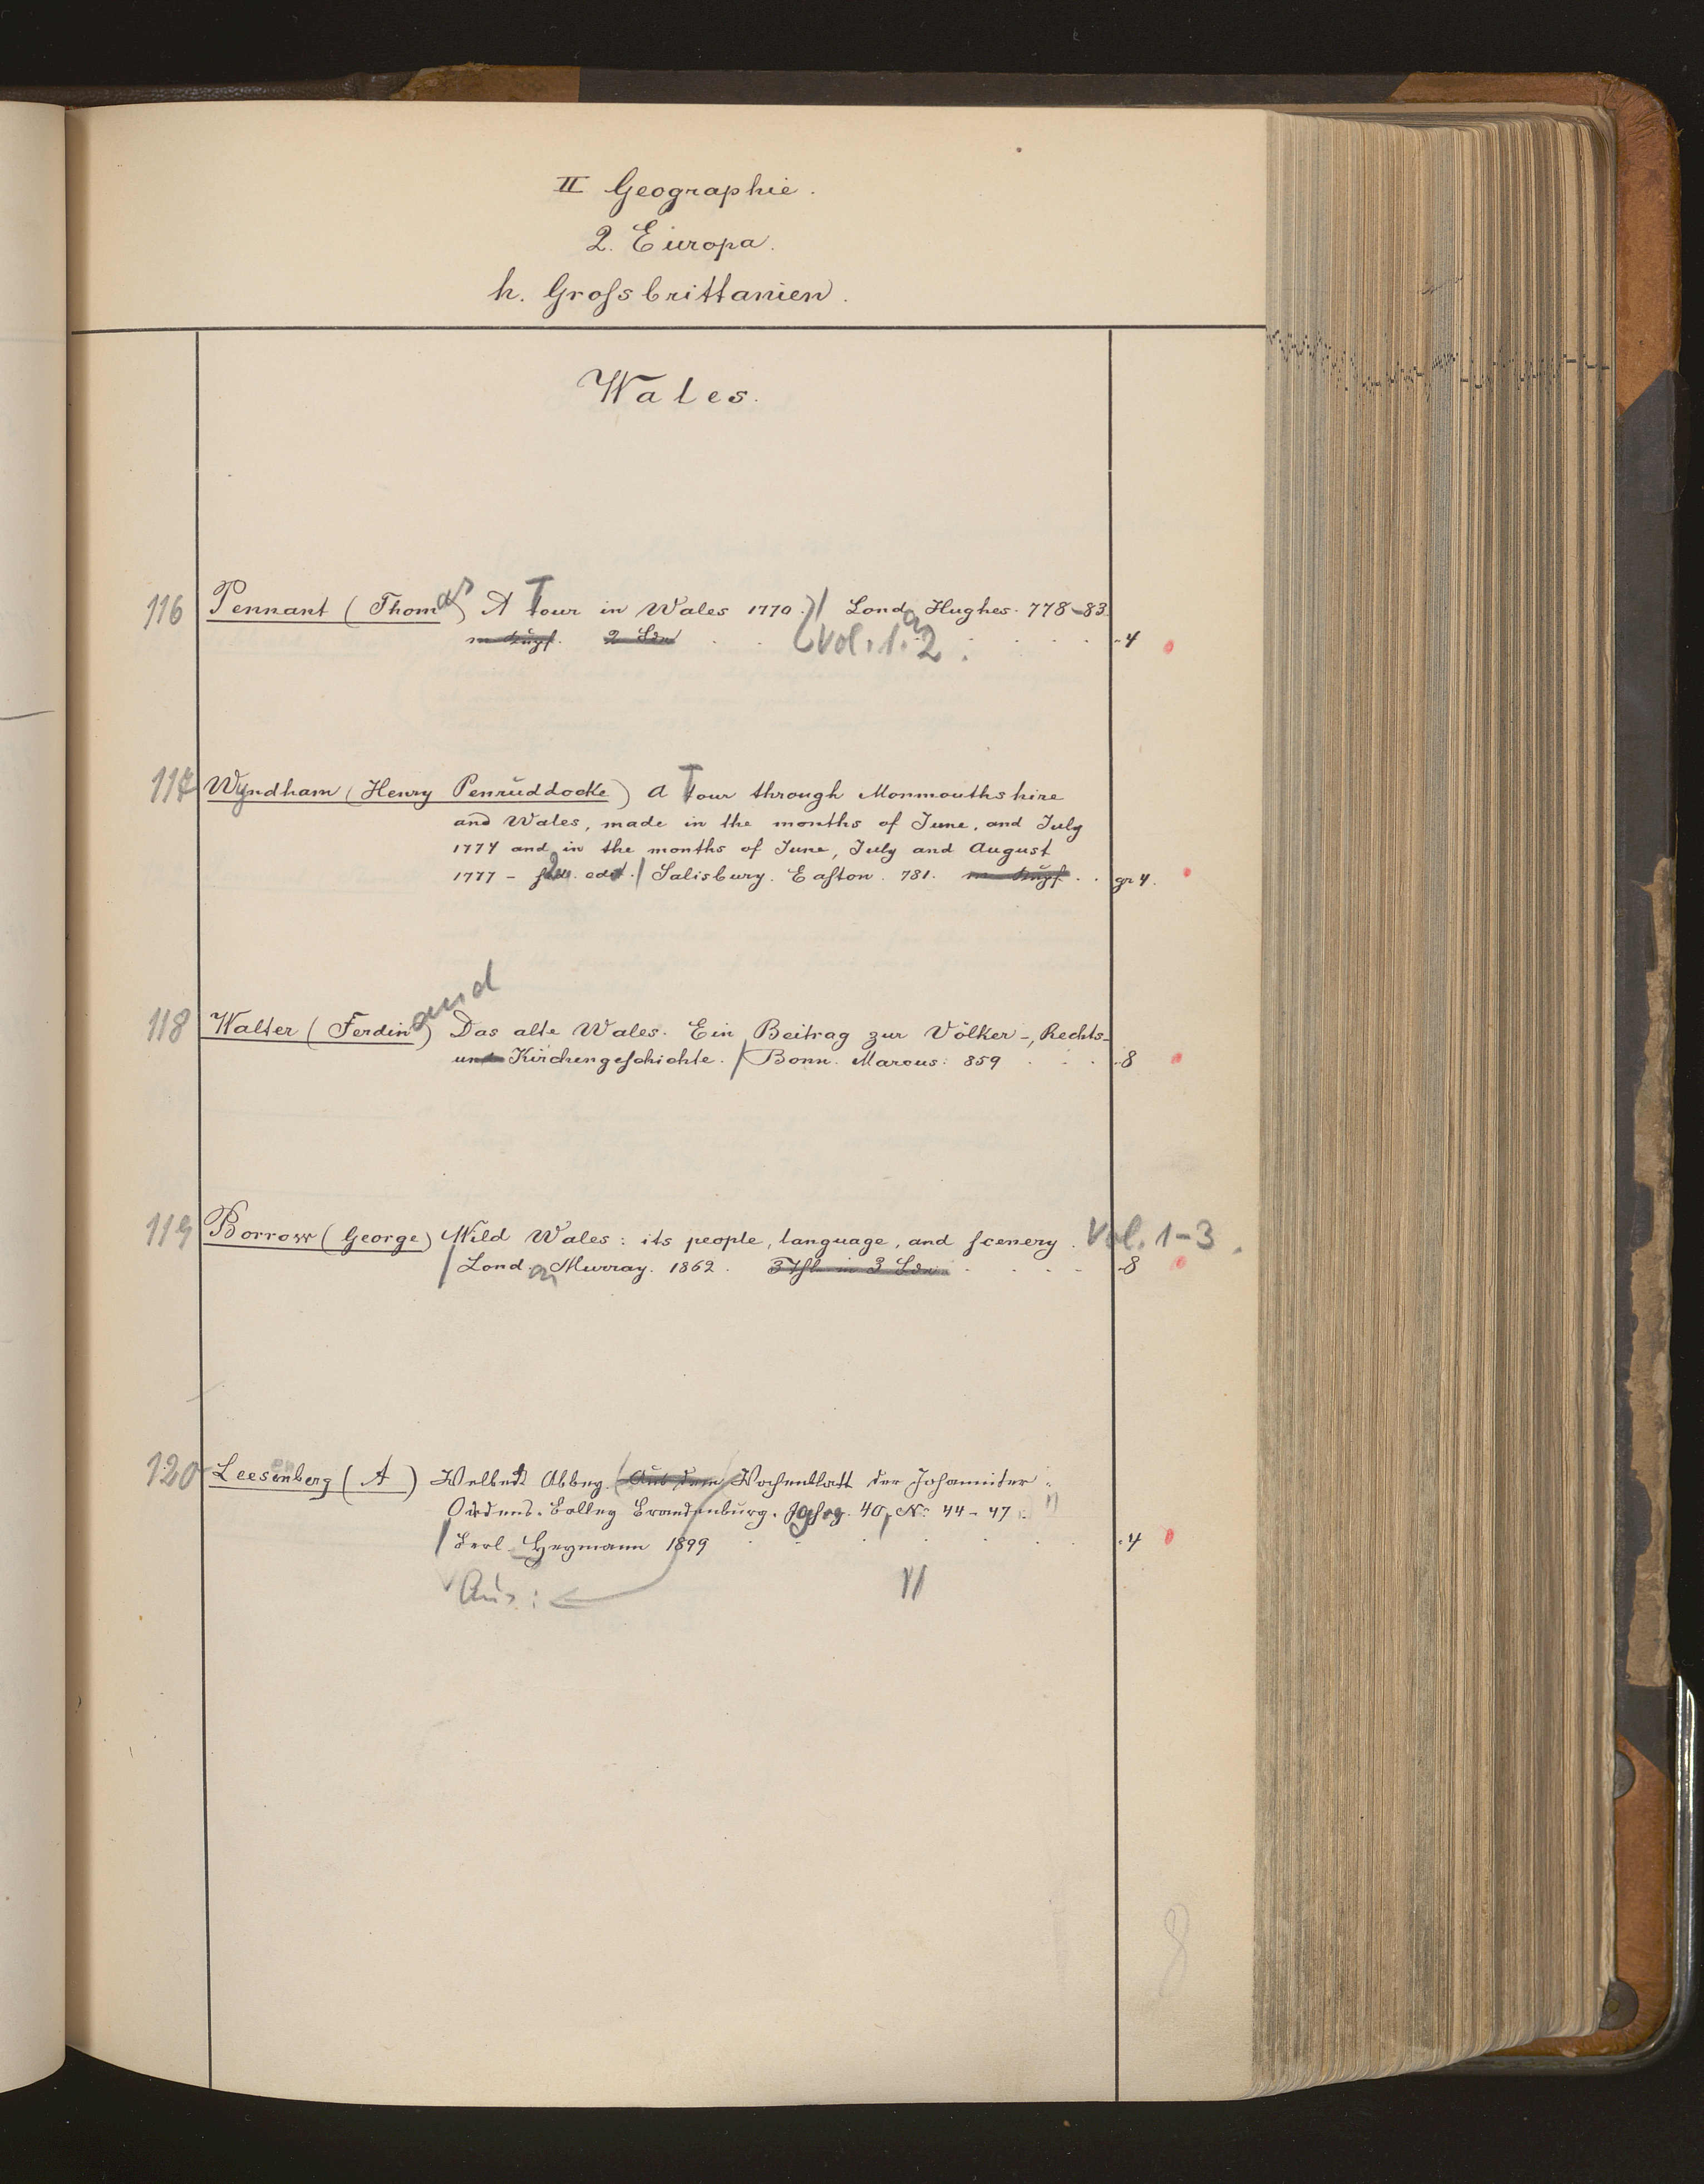 II Geographie.
2. Europa.
h. Grossbrittanien.
Wales.
116 Pennant (Thomas) A Tour in Wales 1770.) / London Hughes. 778-83.
m Kupf. 2 Bde (Vol. 1. 2. 4
117 Wyndham (Henry Penruddocke) A Tour through Monmouthshire
and Wales, made in the months of June, and July
1774 and in the months of June, July and August
1777 - 2. edit. / Salisbury. Easton. 781. m Kupf. gr 4.
118 Walter (Ferdinand) Das alte Wales. Ein Beitrag zur Völker-, Rechts-
und Kirchengeschichte. / Bonn. Marcus: 859 8
119 Borrow (George) Wild Wales: its people, language, and scenery. Vol. 1-3.
/ London Murray. 1862. 3 Thle in 3 Bdn 8
120 Leesenberg (A) Welbeck Abbey. (Aus dem Wochenblatt der Johanniter-
Ordens-Balley Brandenburg. Jg. 40, No 44-47
/ Berl. Heymann 1899 4
Aus:
8